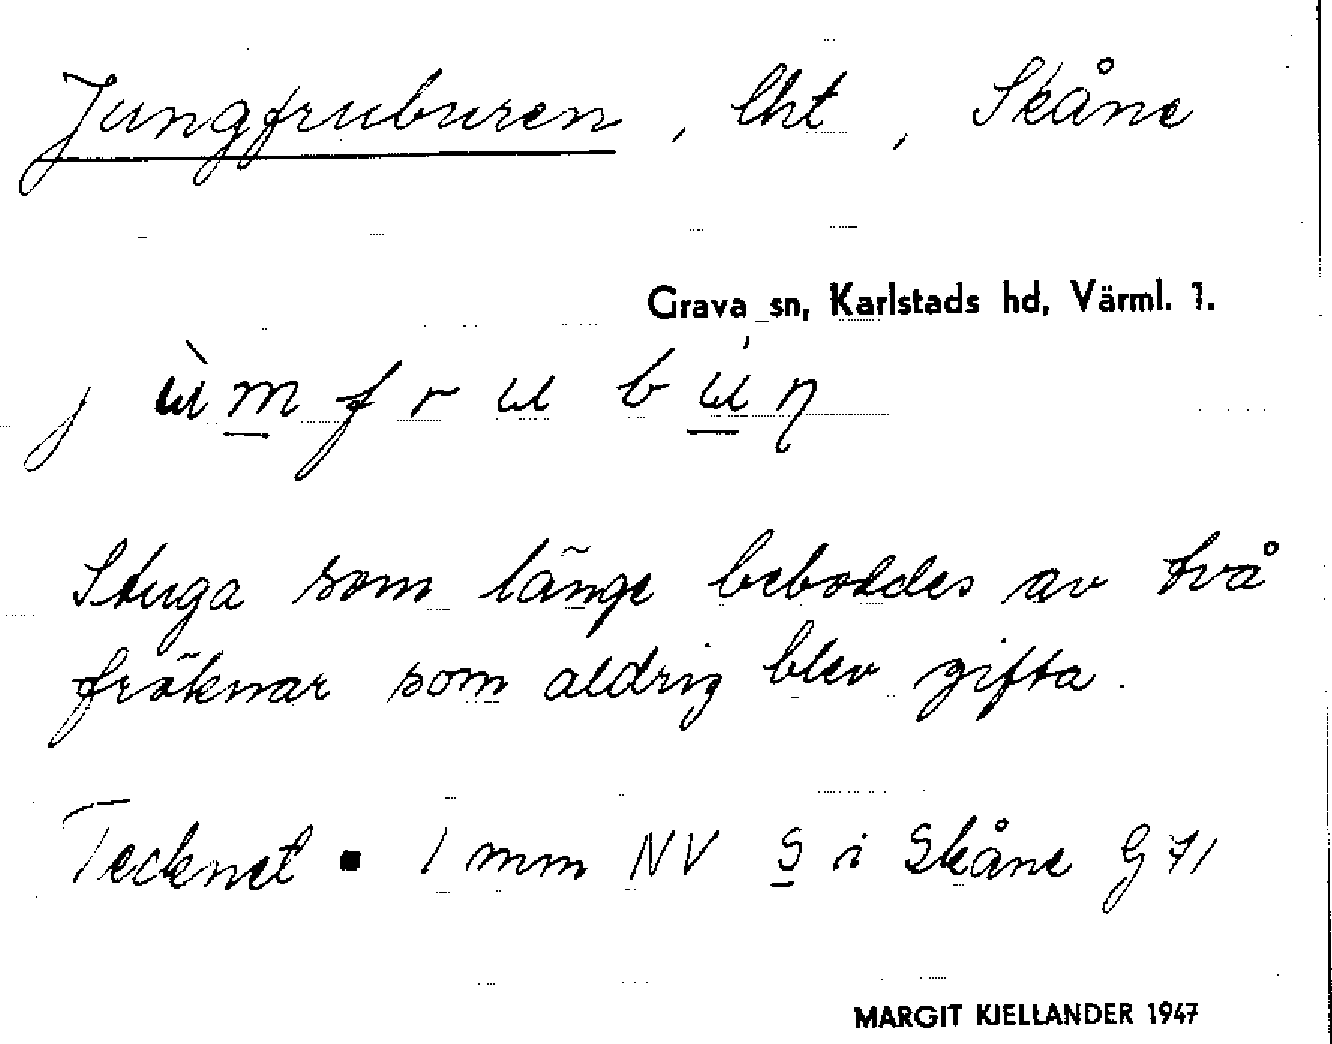 Jungfruburen, lht, Skåne
Grava sn, Karlstads hd, Värml. 1.
jùmfrubún
Stuga som länge beboddes av två
fröknar som aldrig blev gifta.
Tecknet ▪ 1 mm NV S i Skåne G 71
MARGIT KJELLANDER 1947